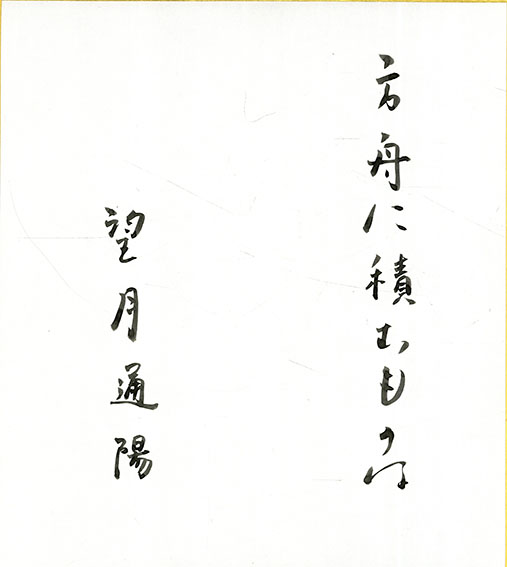 方舟に積むもの
望月通陽